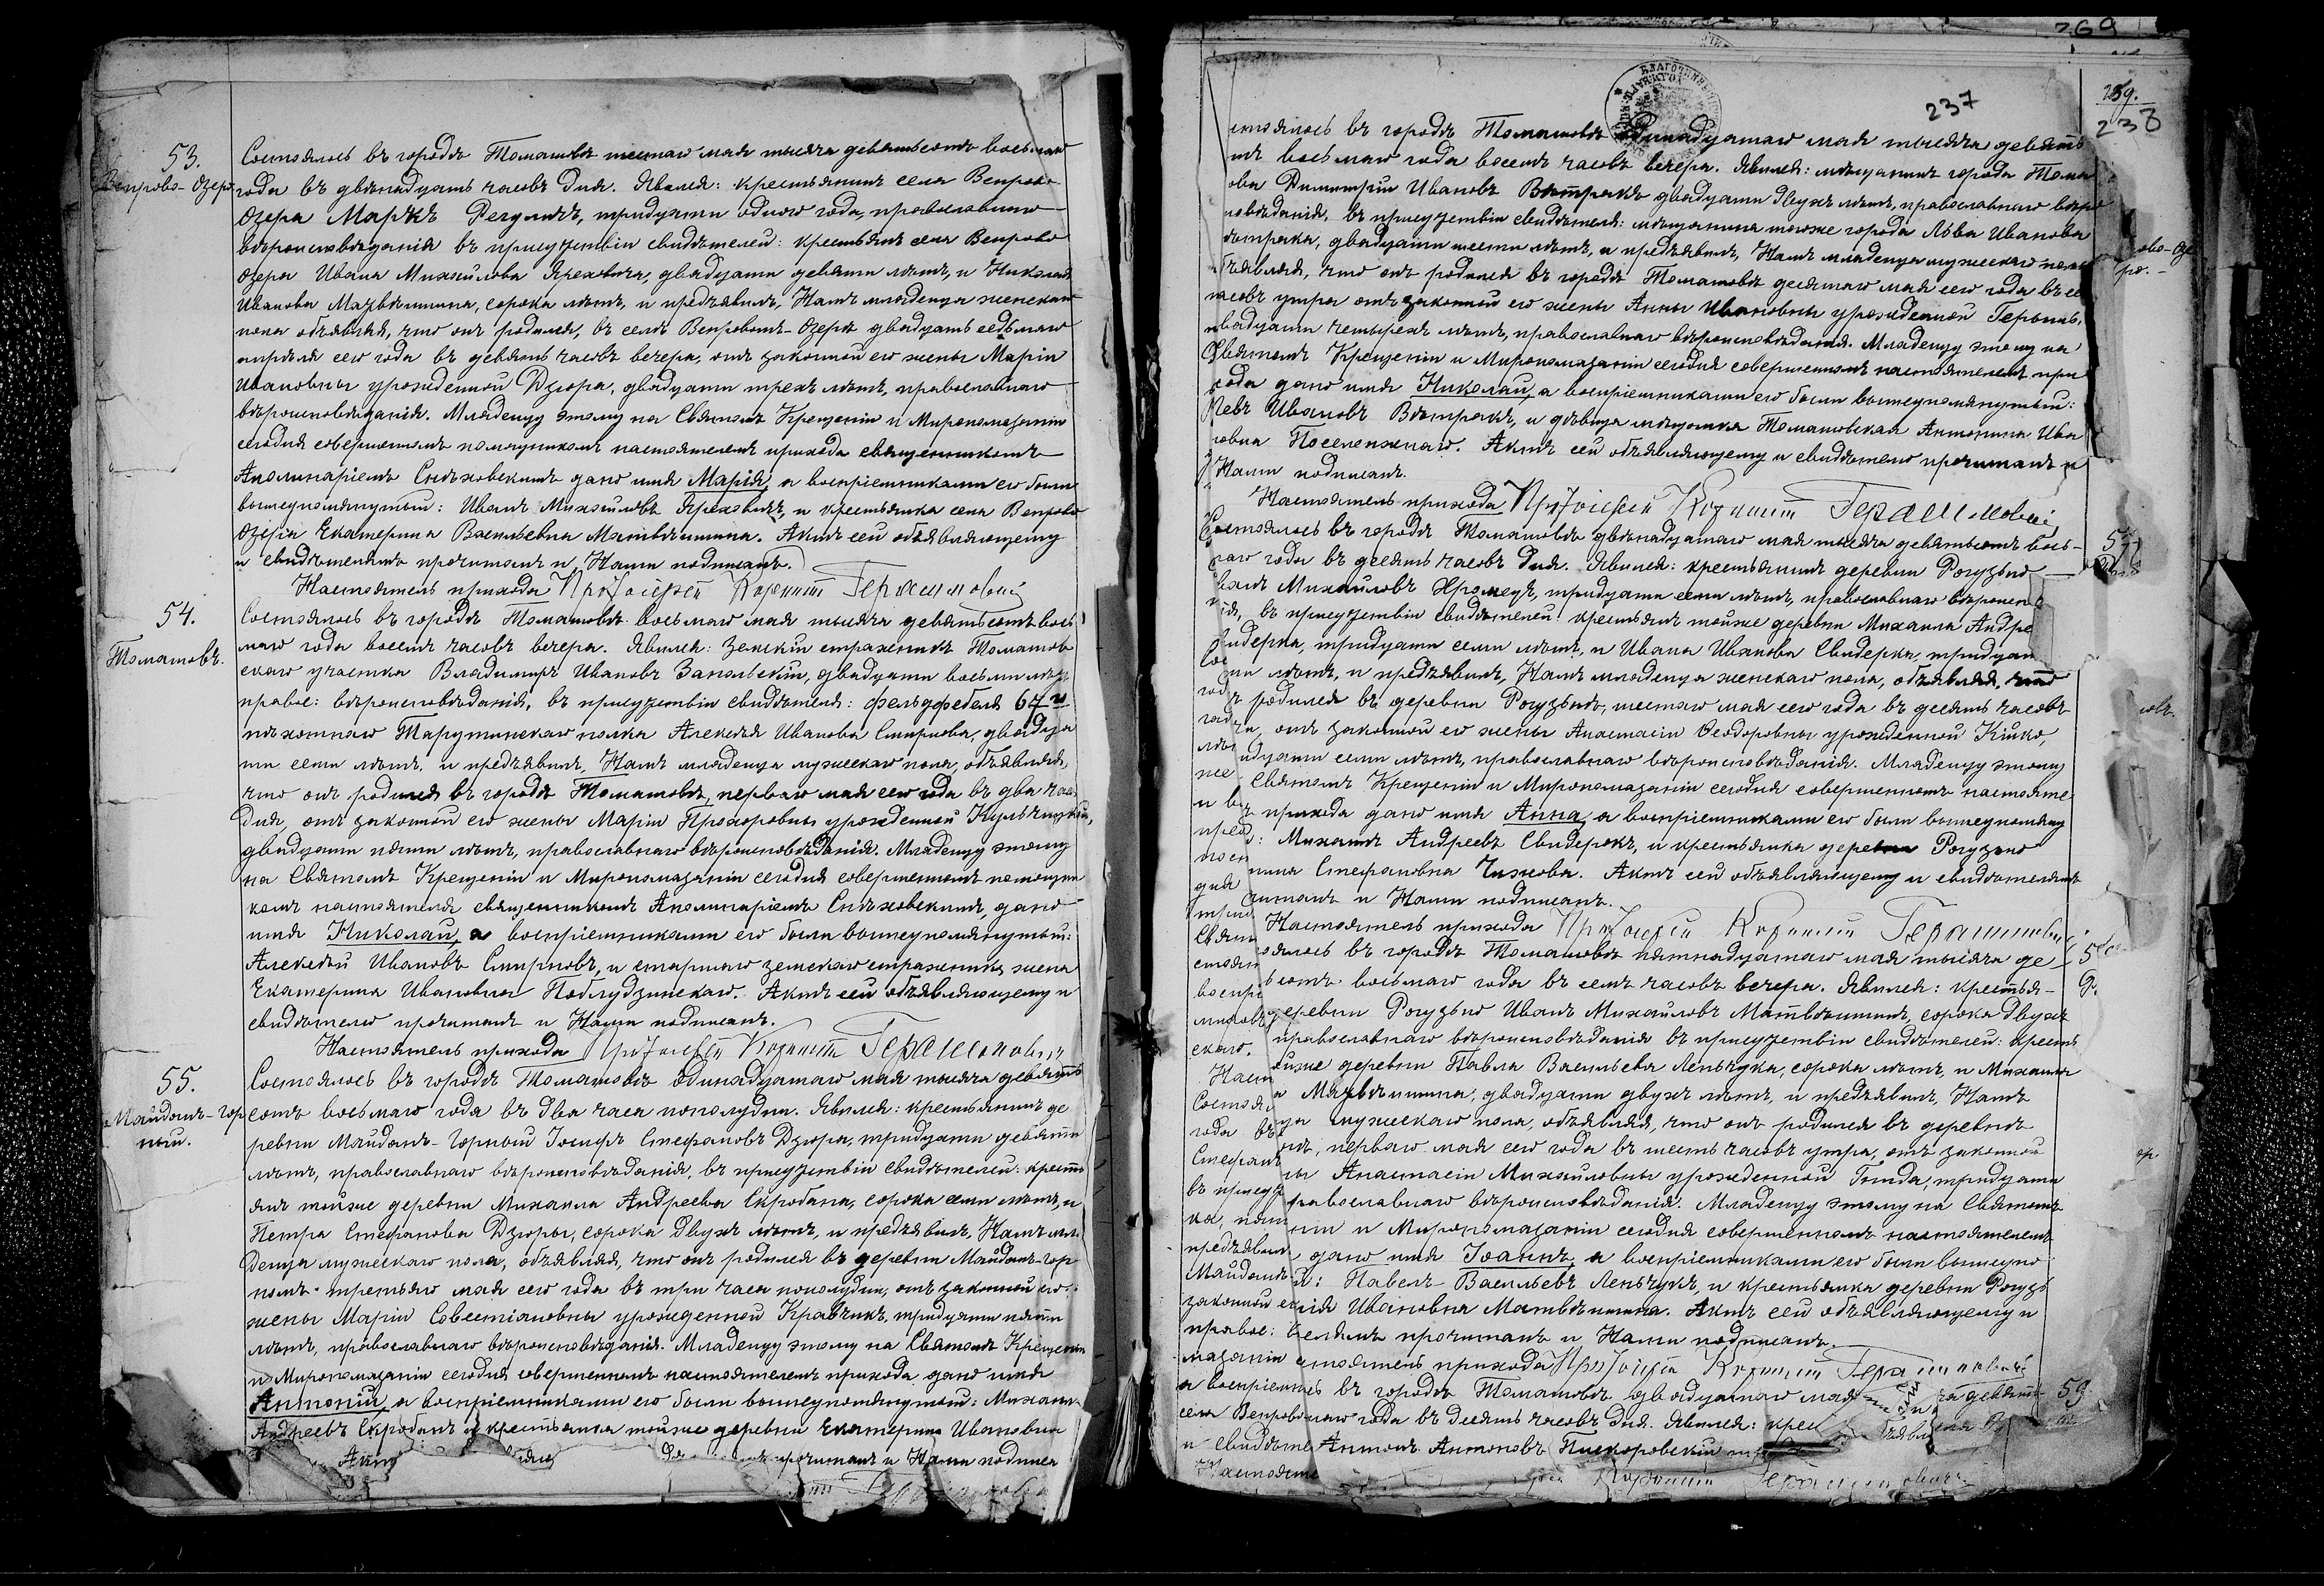 53.
Венрово-Озеро
Состоялось въ городѣ Томашовѣ шестаго мая тысяча девятьсотъ восьмаго
года въ двѣнадцать часовъ дня. Явился: крестьянинъ села Венрово
Озера Маркъ тридцати одного года, православнаго
вѣроисповѣданія въ присутствіи свидѣтелей: крестьянъ села Венрово
Озера Ивана Михайлова Яреховича, двадцати девяти лѣтъ, и Николая
Иванова сорока лѣтъ, и предъявилъ Намъ младенца женскаго
пола объявляя, что онъ родился, въ селѣ Венровомъ-Озерѣ двадцать седьмаго
апрѣля сего года въ девять часовъ вечера, отъ законной его жены Маріи
Ивановны урожденной Дзюра, двадцати трехъ лѣтъ, православнаго
вѣроисповѣданія. Младенцу этому на Святомъ Крещеніи и Миропомазаніи
сегодня совершенномъ помощникомъ настоятелемъ прихода священникомъ
Аполинаріемъ Снѣховскимъ дано имя Марія, а воспріемниками его были
вышеупомянутый: Иванъ Михайловъ Яреховичъ, и крестьянка села Венрово
Озера Екатерина Васильевна Матвѣишина. Актъ сей объявляющему
и свидѣтелямъ прочитанъ и Нами подписанъ.
Настоятель прихода Протоіерей Корнилій Герашимовичъ
54.
Томашовъ.
Состоялось въ городѣ Томашовѣ восьмаго мая тысяча девятьсотъ вось
маго года восемь часовъ вечера. Явился: земскій стражникъ Томашов
скаго участка Владимиръ Ивановъ Запольскій, двадцати восьми лѣтъ
правос: вѣроисповѣданія, въ присутствіи свидѣтеля: фельдфебеля 64 го
пѣхотнаго Тарутинскаго полка Алексѣя Иванова Смирнова, двадца
ти семи лѣтъ, и предъявилъ, Намъ младенца мужескаго пола, объявляя,
что онъ родился въ городѣ Томашовѣ, перваго мая сего года въ два часа
дня, отъ законной его жены Маріи Прохоровны урожденной Кульчицкой,
двадцати пяти лѣтъ, православнаго вѣроисповѣданія. Младенцу этому
на Святомъ Крещеніи и Миропомазаніи сегодня совершенномъ помощни
комъ настоятеля священникомъ Аполинаріемъ Снѣховскимъ, дано
имя Николай, а воспріемниками его были вышеупомянутый:
Алексѣй Ивановъ Смирновъ, и старшаго земскаго стражника жена
Екатерина Ивановна Актъ сей объявляющему и
свидѣтелю прочитанъ и Нами подписанъ.
Настоятель прихода Протоіерей Корнилій Герашимовичъ
55.
Майданъ-Гор
ный.
Состоялось въ городѣ Томашовѣ одинадцатаго мая тысяча девять
сотъ восьмаго года въ два часа пополудни. Явился: крестьянинъ де
ревни Майданъ-Горный Іосифъ Стефановъ Дзюра, тридцати девяти
лѣтъ, православнаго вѣроисповѣданія, въ присутствіи свидѣтелей: кресть
янъ тойже деревни Михаила Андреева Скробана, сорока семи лѣтъ, и
Петра Стефанова Дзюры, сорока двухъ лѣтъ, и предъявилъ, Намъ мла
денца мужескаго пола, объявляя, что онъ родился въ деревни Майданъ-Гор
номъ третьяго мая сего года въ три часа пополудни, отъ законной его
жены Маріи Севестіановны урожденной Кравчикъ, тридцати пяти
лѣтъ, православнаго вѣроисповѣданія. Младенцу этому на Святомъ Крещеніи
и Миропомазаніи сегодня совершенномъ настоятелемъ прихода дано имя
Антоній, а воспріемниками его были вышеупомянутый: Михаилъ
Андреевъ Скробанъ и крестьянка тойже деревни Екатерина Ивановна
Акт прочитанъ и Нами подписа
269
237
239.
238
стоялось въ городѣ Томашовѣ одинадцатаго мая тысяча девять
тъ восьмаго года восемь часовъ вечера. Явился: мѣщанинъ города Тома
ова Димитрій Ивановъ Вѣтракъ двадцати двухъ лѣтъ, православнаго вѣро
повѣданія, въ присутствіи свидѣтеля: мѣщанина тогоже города Льва Иванова
ѣтрака, двадцати шести лѣтъ, и предъявилъ, Намъ младенца мужескаго пола
бъявляя, что онъ родился въ городѣ Томашовѣ десятаго мая сего года въ се
часовъ утра отъ законной его жены Анны Ивановны урожденной
двадцати четырехъ лѣтъ, православнаго вѣроисповѣданія. Младенцу этому на
Святомъ Крещеніи и Миропомазаніи сегодня совершенномъ настоятелемъ при
хода дано имя Николай, а воспріемниками его были вышеупомянутый:
Левъ Ивановъ Вѣтракъ, и дѣвица мѣщанка Томашовская Антонина Ива
новна Актъ сей объявляющему и свидѣтелю прочитанъ и
Нами подписанъ.
Настоятель прихода Протоіерей Корнилій Герашимовичъ
57
Состоялось въ городѣ Томашовѣ двѣнадцатаго мая тысяча девятьсотъ вось-
маго года въ десять часовъ дня. Явился: крестьянинъ деревни Рогузьно
Иванъ Михайловъ Хромецъ, тридцати семи лѣтъ, православнаго вѣроиспо
нія, въ присутствіи свидѣтелей: крестьянъ тойже деревни Михаила Андре
видерка, тридцати семи лѣтъ, и Ивана Иванова Свидерка, тридцати
ми лѣтъ, и предъявилъ, Намъ младенца женскаго пола, объявляя, что
родился въ деревни Рогузьнѣ, шестаго мая сего года въ десять часовъ
отъ законной его жены Анастасіи Ѳеодоровны урожденной Кишко,
дцати семи лѣтъ, православнаго вѣроисповѣданія. Младенцу этому
Святомъ Крещеніи и Миропомазаніи сегодня совершенномъ настояте
прихода дано имя Анна, а воспріемниками его были вышеупомяну
Михаилъ Андреевъ Свидерокъ, и крестьянка деревни Рогузьно
Стефановна Чижова. Актъ сей объявляющему и свидѣтелямъ
читанъ и Нами подписанъ.
Настоятель прихода Протоіерей Корнилій Герашимовичъ
оялось въ городѣ Томашовѣ пятнадцатаго мая тысяча де
сотъ восьмаго года въ семь часовъ вечера. Явился: крестья-
деревни Рогузьно Иванъ Михайловъ Матвѣишинъ, сорока двухъ
православнаго вѣроисповѣданія въ присутствіи свидѣтелей: кресть
ойже деревни Павла Васильева Леньчука, сорока лѣтъ, и Михаила
двадцати двухъ лѣтъ, и предъявилъ, Намъ
мужескаго пола, объявляя, что онъ родился въ деревнѣ
перваго мая сего года въ шесть часовъ утра, отъ законной
Анастасіи Михайловны урожденной Гнида, тридцати
равославнаго вѣроисповѣданія. Младенцу этому на Святомъ
и Миропомазаніи сегодня совершенномъ настоятелемъ
дано имя Іоаннъ, а воспріемниками его были вышеупо
Павелъ Васильевъ Леньчукъ, и крестьянка деревни Рогузь
Ивановна Матвѣишина. Актъ сей объявляющему и
прочитанъ и Нами подписанъ.
стоятель прихода Протоіерей Корнилій Герашимовичъ
59
въ городѣ Томашовѣ двадцатаго мая девять
маго года въ десять часовъ дня. Явился: крес
Антонъ Антоновъ Пискоровскій